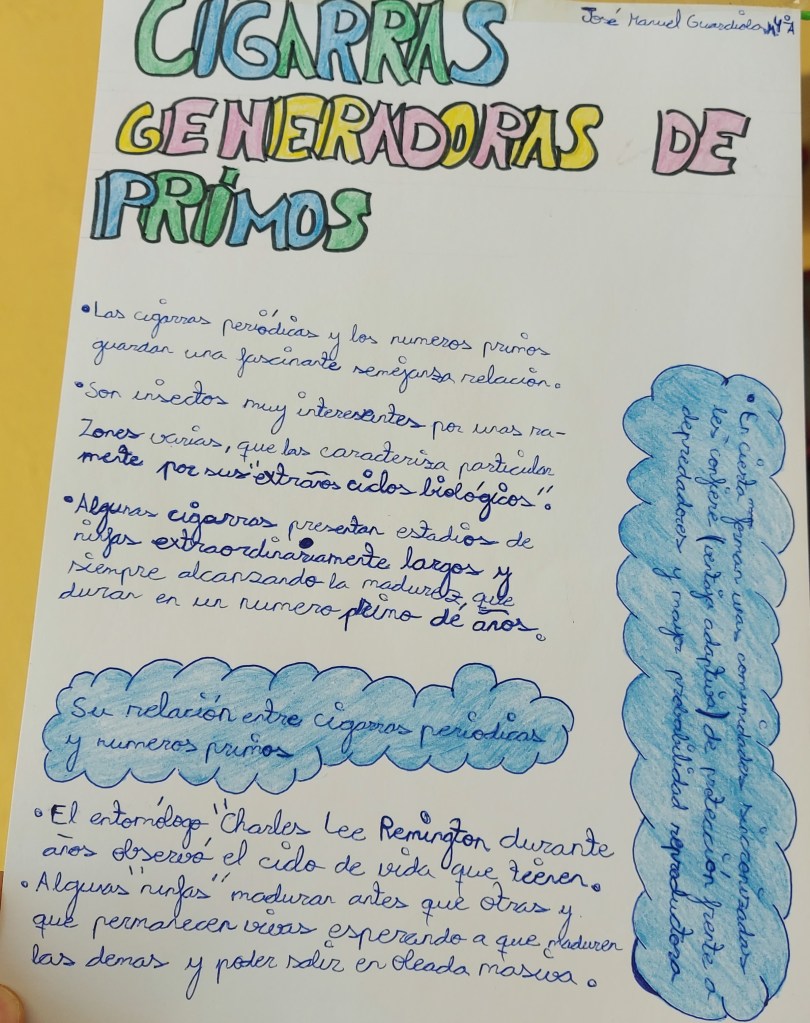 José Manuel Guardiola 4ºA
CIGARRAS
GENERADORAS DE
PRIMOS
•Las cigarras periódicas y los numeros primos
guardan una fascinante semejanza relación.
•Son insectos muy interesantes por unas ra-
zones varias, que las caracteriza particular
mente por sus "extraños ciclos biológicos".
•Algunas cigarras presentan estadios de
ninfas extraordinariamente largos y
siempre alcanzando la madurez, que
duran en un numero primo de años.
Su relación entre cigarras periodicas
y numeros primos
•El entomólogo "Charles Lee Remington durante
años observó el ciclo de vida que tienen.
•Algunas "ninfas" maduran antes que otras y
que permanecen vivas esperando a que maduren
las demas y poder salir en oleada masiva.
•En cierta forman unas comunidades sincronizadas
les confiere (ventaja adaptiva) de protección frente a
depredadores y mayor probabilidad reproductora